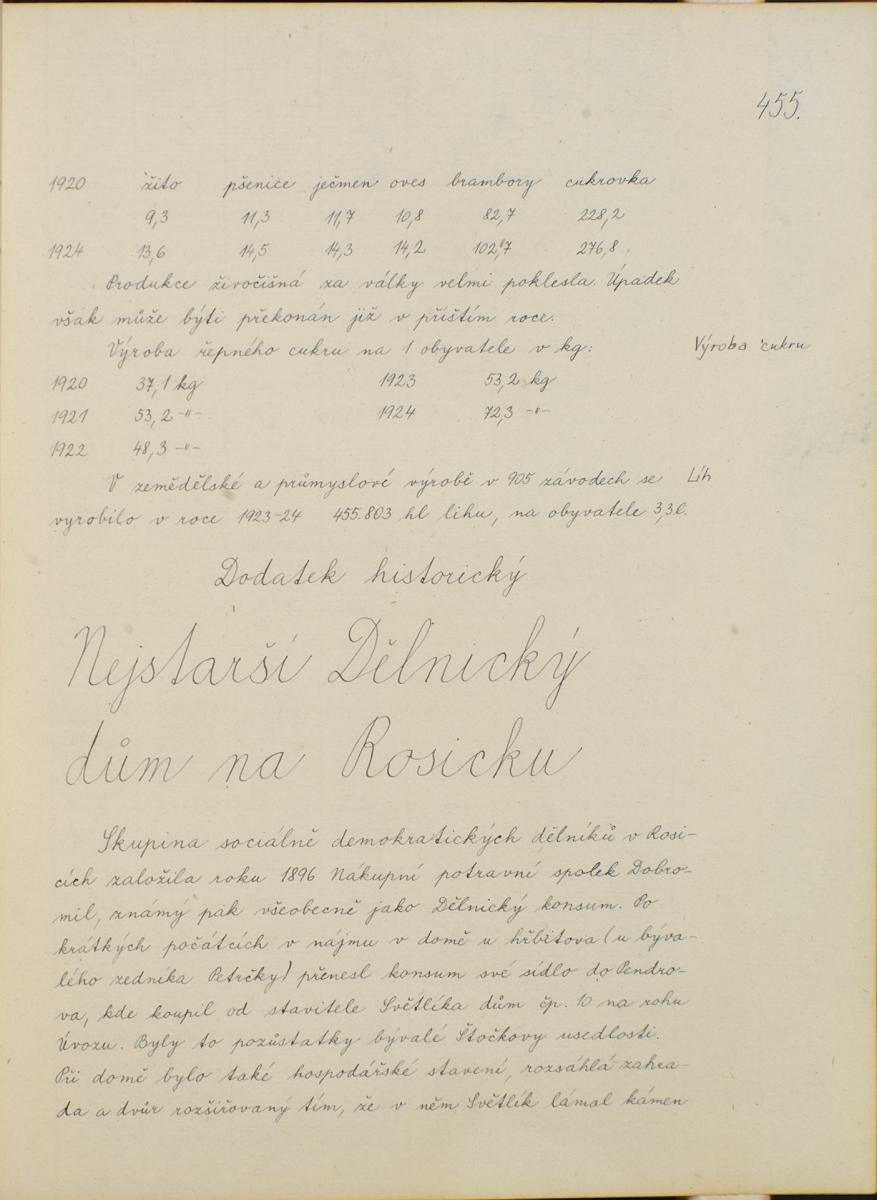 455.
1920 žito pšenice ječmen oves brambory cukrovka
9,3 11,3 11,7 10,8 82,7 228,2
1924 13,6 14,5 14,3 14,2 102,7 276,8.
Produkce živočišná za války velmi poklesla. Úpadek
však může býti překonán již v příštím roce.
Výroba řepného cukru na 1 obyvatele v kg: Výroba cukru
1920 37,1 kg 1923 53,2 kg
1921 53,2 -"- 1924 72,3 -"-
1922 48,3 -"-
V zemědělské a průmyslové výrobě v 905 závodech se Líh
vyrobilo v roce 1923-24 455.803 hl lihu, na obyvatele 3,3 l.
Dodatek historický
Nejstarší Dělnický
dům na Rosicku
Skupina sociálně demokratických dělníků v Rosi-
cích založila roku 1896 Nákupní potravní spolek Dobro-
mil, známý pak všeobecně jako Dělnický konsum. Po
krátkých počátcích v nájmu v domě u hřbitova (u býva-
lého zedníka Petrčky) přenesl konsum své sídlo do Pendro-
va, kde koupil od stavitele Světlíka dům čp. 10 na rohu
Úvozu. Byly to pozůstatky bývalé Štočkovy usedlosti.
Při domě bylo také hospodářské stavení, rozsáhlá zahra-
da a dvůr rozšiřovaný tím, že v něm Světlík lámal kámen